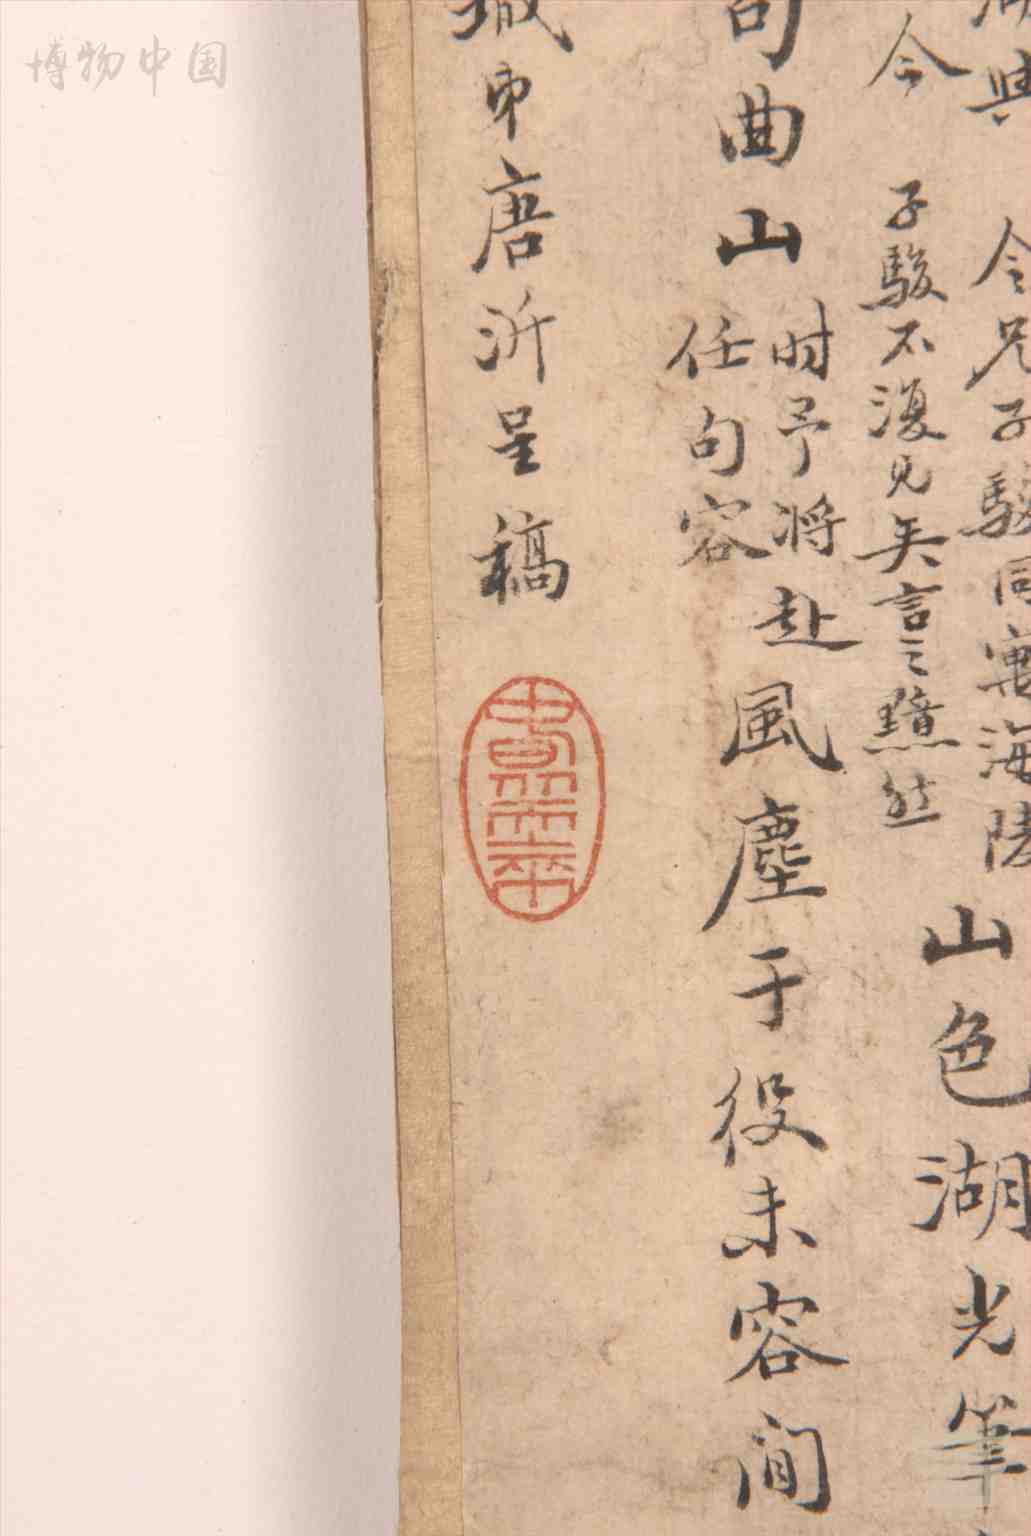 博物中国
湖與 令兄子駿同寓海陵
今 子駿不復见矣言之黯然
山色湖光筆
句曲山
时予将赴
任句容
風塵于役未容间
弟唐沂呈稿